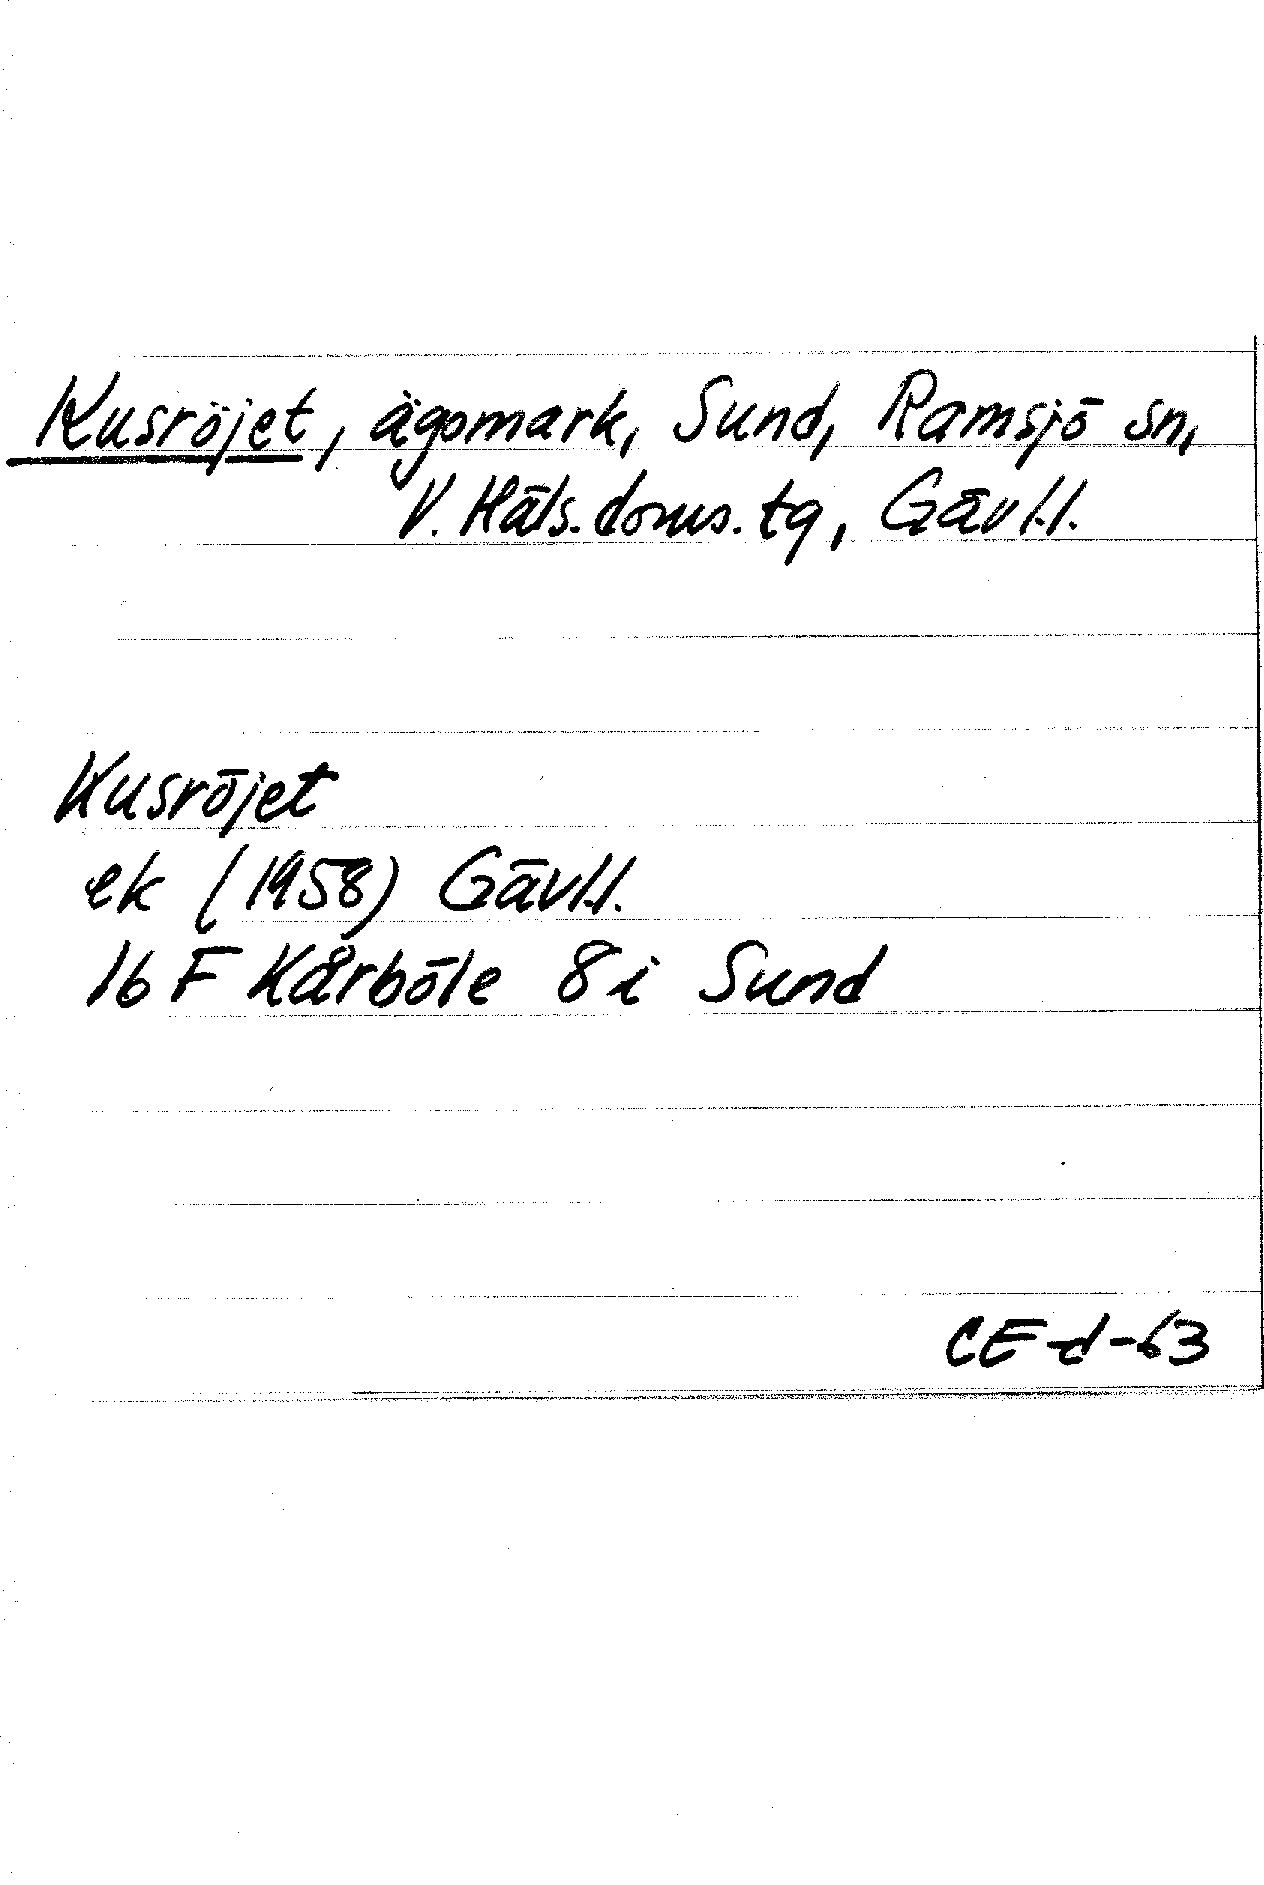 Kusröjet, ägomark, Sund, Ramsjö sn,
V. Häls. doms. tg, Gävl.l.
Kusröjet
ek (1958) Gävl.l.
16 F Kårböle 8 i Sund
CE-d-63